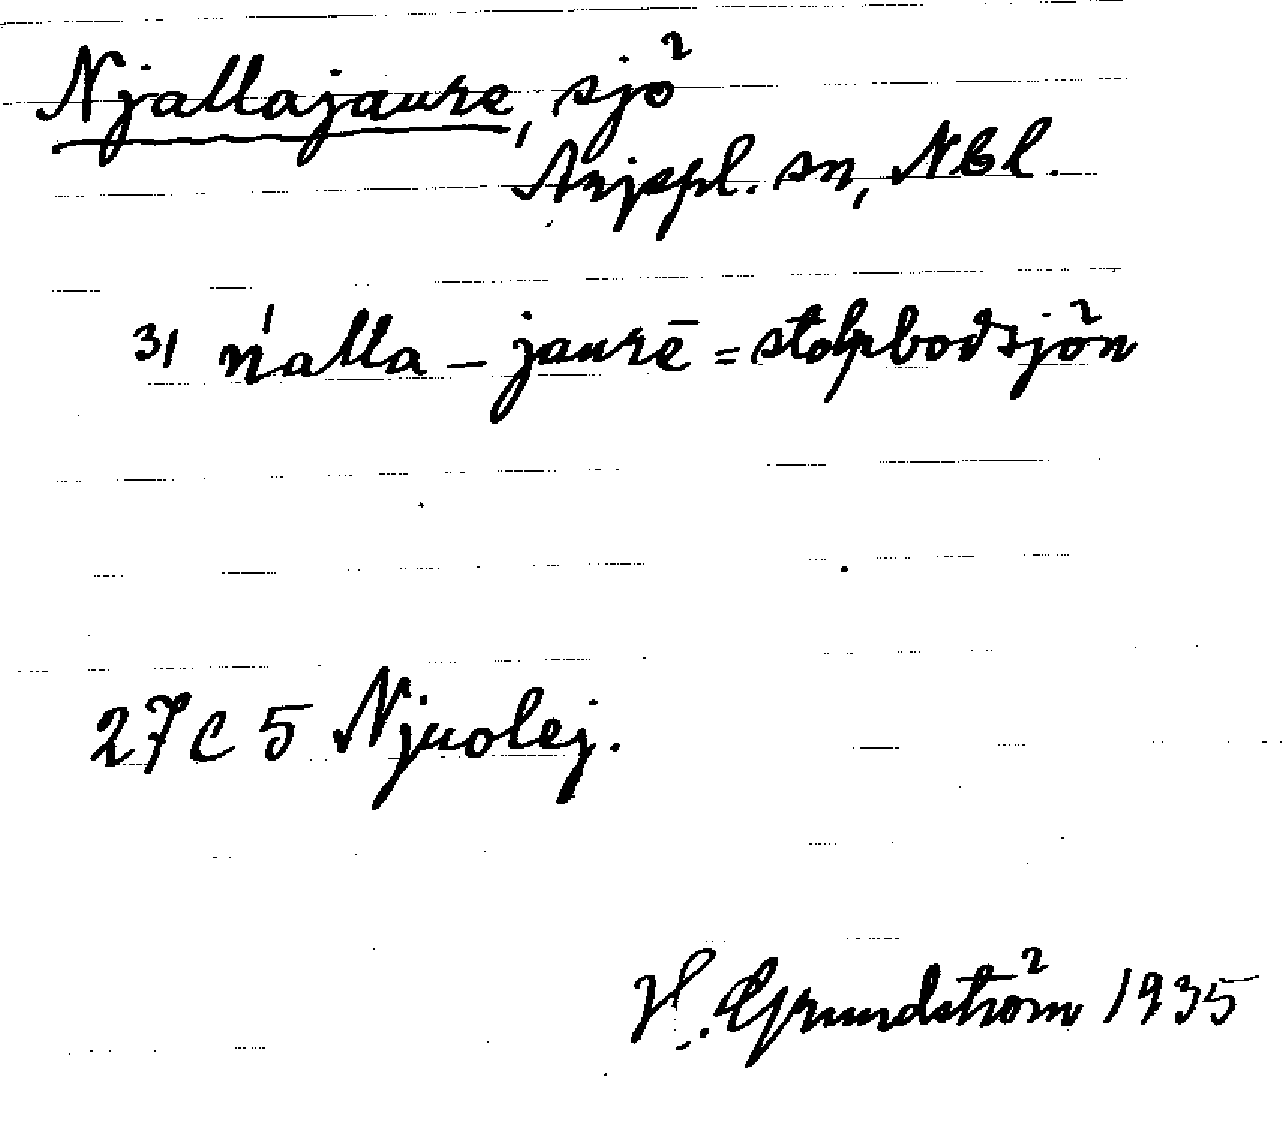 Njallajaure, sjö
Arjepl. sn, Nbl.
31 ń'alla – jaurē = stolpbodsjön
27 C 5 Njuolej.
H. Grundström 1935